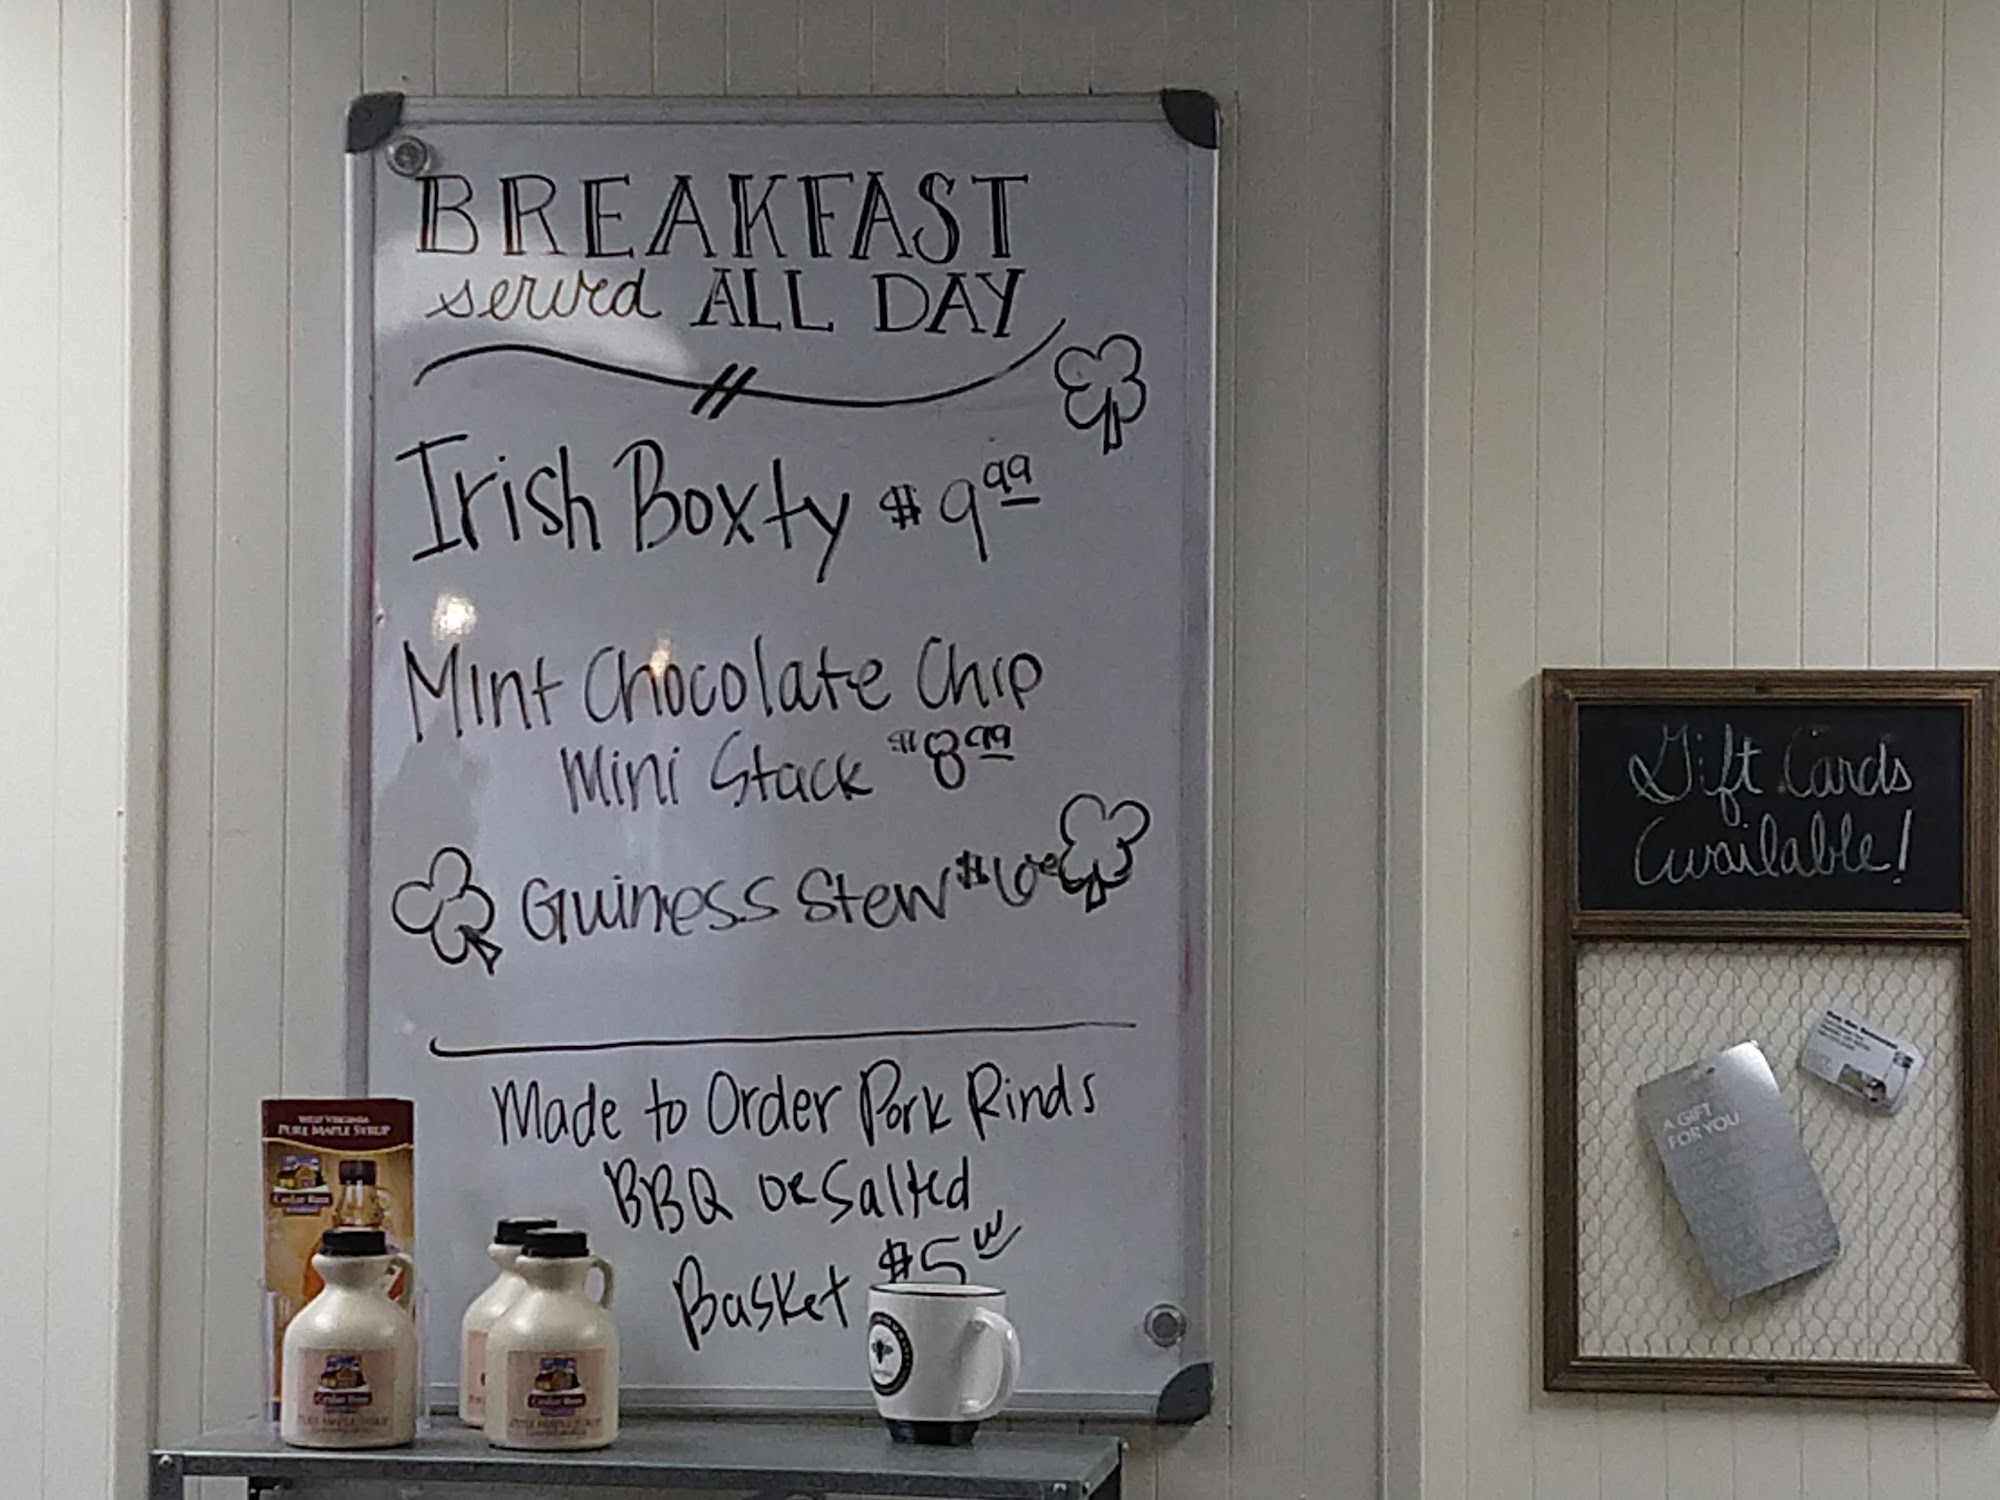 BREAKFAST
served ALL DAY
Irish Boxty $9 99
Mint Chocolate Chip
Mini Stack $8 99
Guiness Stew $6
Made to Order Pork Rinds
BBQ or Salted
Basket $5
WEST VIRGINIA
PURE MAPLE SYRUP
Cedar Run
Cedar Run
PURE MAPLE SYRUP
Cedar Run
PURE MAPLE SYRUP
Gift Cards
Available!
A GIFT
FOR YOU